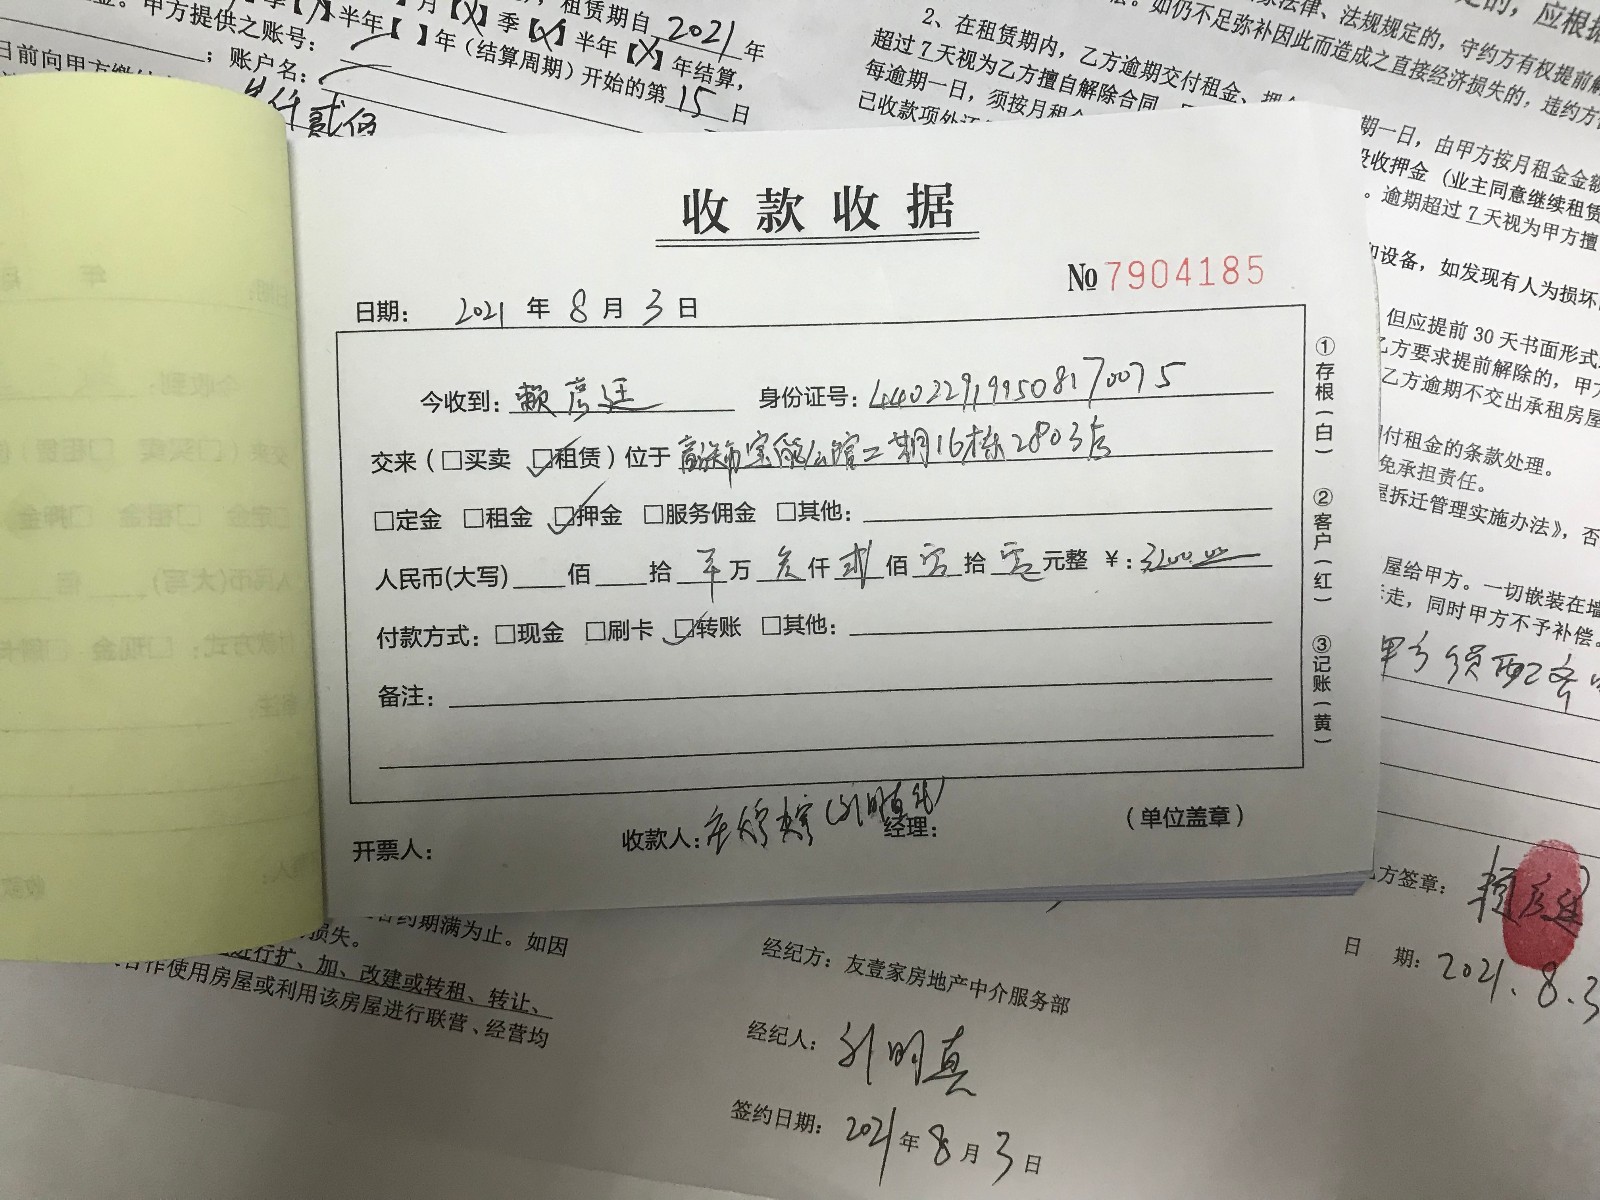 租赁期自 2021 年
季【╳】半年【 】月【╳】季【╳】半年【╳】年结算，
金。甲方提供之账号：
年（结算周期）开始的第 15 日
日前向甲方缴纳
；账户名：
仟贰佰
定的，应根据
法律、法规规定的，守约方有权提前解
如仍不足弥补因此而造成之直接经济损失的，违约方
2、在租赁期内，乙方逾期交付租金、押金
超过 7 天视为乙方擅自解除合同
每逾期一日，须按月租金
已收款项外还
期一日，由甲方按月租金金额
没收押金（业主同意继续租赁
。逾期超过 7 天视为甲方擅
和设备，如发现有人为损坏
但应提前 30 天书面形式
乙方要求提前解除的，甲方
乙方逾期不交出承租房屋
付租金的条款处理。
免承担责任。
屋拆迁管理实施办法》，否
屋给甲方。一切嵌装在墙
走，同时甲方不予补偿。
甲方须配齐
收款收据
№ 7904185
日期： 2021 年 8 月 3 日
今收到： 赖彦廷 身份证号： 440229199508170075
交来（□买卖 ☑租赁）位于 宝能公馆二期16栋2803房
□定金 □租金 ☑押金 □服务佣金 □其他：
人民币(大写) 佰 拾 万 叁仟 贰佰 零拾 零元整 ￥：3200.00
付款方式：□现金 □刷卡 ☑转账 □其他：
备注：
开票人： 收款人： 经理： （单位盖章）
①存根（白） ②客户（红） ③记账（黄）
合约期满为止。如因
损失。
进行扩、加、改建或转租、转让、
合作使用房屋或利用该房屋进行联营、经营均
经纪方：友壹家房地产中介服务部
经纪人： 明真
签约日期： 2021年 8 月 3 日
乙方签章： 赖彦廷
日 期： 2021.8.3